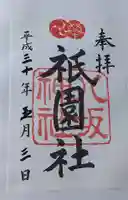 奉拝
八坂神社
祇園社
平成三十年五月三日